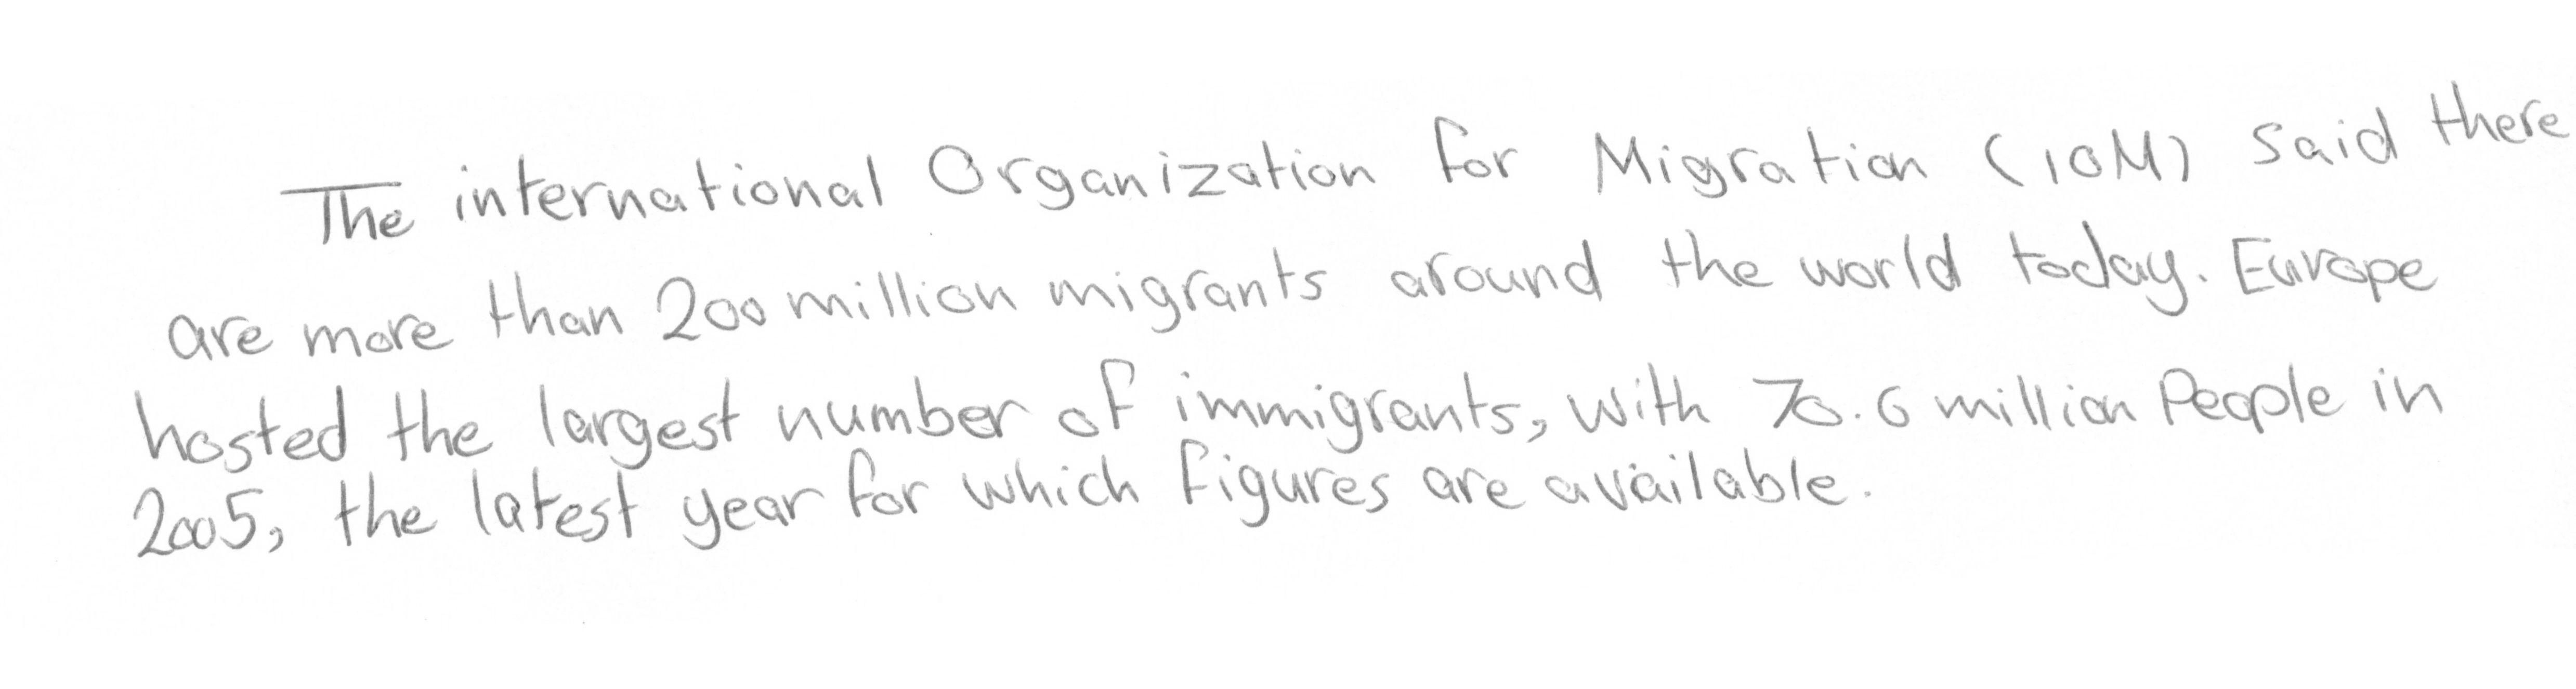 The international Organization for Migration (IOM) said there
are more than 200 million migrants around the world today. Europe
hosted the largest number of immigrants, with 70.6 million People in
2005, the latest year for which figures are available.